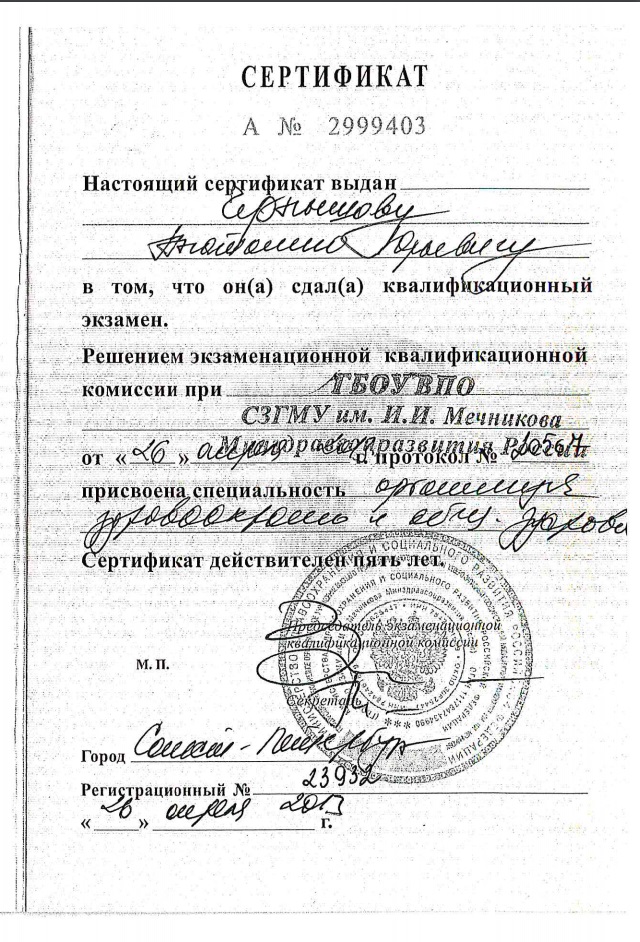 СЕРТИФИКАТ
А № 2999403
Настоящий сертификат выдан
Юрьевичу
в том, что он(а) сдал(а) квалификационный
экзамен.
Решением экзаменационной квалификационной
комиссии при ГБОУ ВПО
СЗГМУ им. И.И. Мечникова
Минздравсоцразвития России
от « 26 » апреля г. протокол №
присвоена специальность организация
здравоохран и общ. здоров
Сертификат действителен пять лет.
Председатель экзаменационной
квалификационной комиссии
М. П.
Секретарь
Город Санкт-Петербург
Регистрационный № 23932
« 26 » апреля 2013 г.